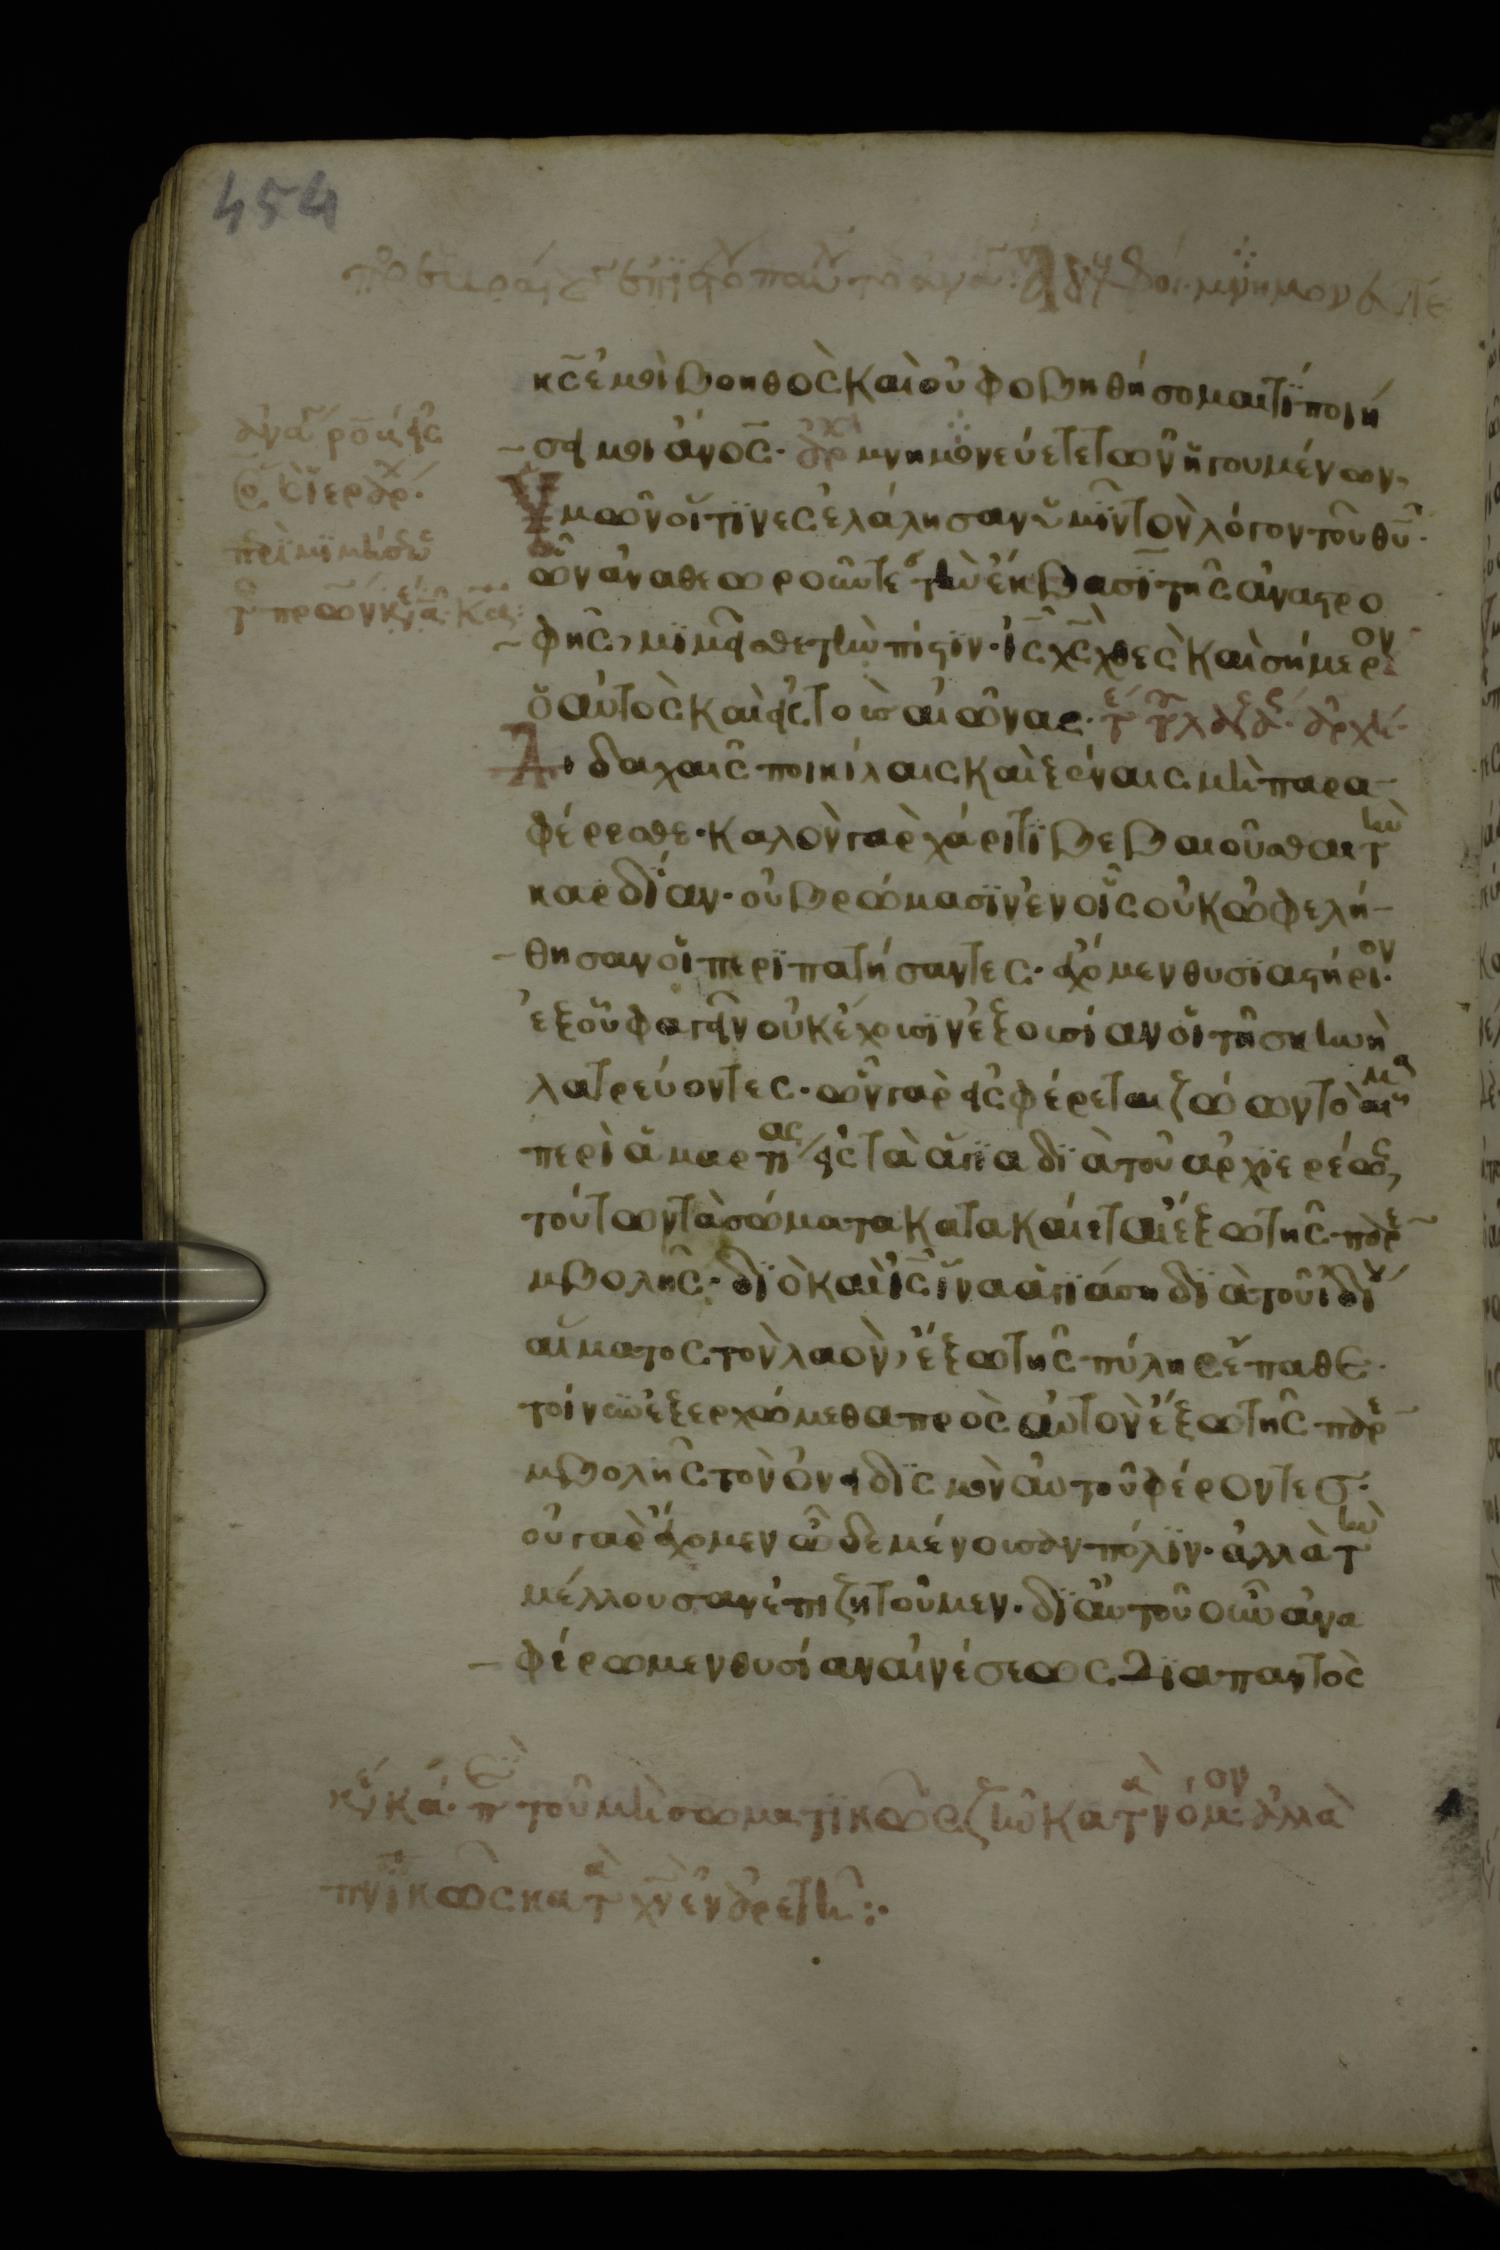 454
κ̅ς̅ ἐμοὶ βοηθὸς καὶ οὐ φοβηθήσομαι τί ποιή
σει μοι ἄνο̅ς̅· ἀρχ μνημονεύετε τῶν ἡγουμένων,
ὑμῶν οἵτινες ἐλάλησαν ὑμῖν τὸν λόγον τοῦ θ̅υ̅·
ὧν ἀναθεωροῦντες τὴν ἔκβασϊ τῆς ἀναστρο
φῆς, μιμεῖσθε τὴν πίστϊν· ι̅ς̅ χ̅ς̅ χθὲς καὶ σήμερον
ὁ αὐτὸς καὶ εἰς τοὺς αἰῶνας·
Διδαχαῖς ποικίλαις καὶ ξέναις μὴ παρα
φέρεσθε· καλὸν γὰρ χάριτϊ βεβαιοῦσθαι τὴν
καρδίαν· οὐ βρώμασϊν ἐν οἷς οὐκ ὠφελή
θησαν οἱ περϊπατήσαντες· ἔχομεν θυσϊαστήριον·
ἐξ οὗ φαγεῖν οὐκ ἔχουσϊν ἐξουσίαν οἱ τῇ σκηνῇ
λατρεύοντες· ὧν γὰρ εἰσφέρεται ζώων τὸ αἷμα
περὶ ἁμαρτίας εἰς τὰ ἅγϊα δϊὰ τοῦ ἀρχϊερέως,
τούτων τὰ σώματα κατακαίεται ἔξω τῆς παρε
μβολῆς· δϊὸ καὶ ι̅ς̅ ἵνα ἁγϊάση δϊὰ τοῦ ἰδίου
αἵματος τὸν λαὸν, ἔξω τῆς πύλης ἔπαθε·
τοίνυν ἐξερχώμεθα πρὸς αὐτὸν ἔξω τῆς παρε
μβολῆς τὸν ὀνειδϊσμὸν αὐτοῦ φέροντες·
οὐ γὰρ ἔχομεν ὧδε μένουσαν πόλϊν· ἀλλὰ τὴν
μέλλουσαν ἐπιζητοῦμεν· δϊ αὐτοῦ οὖν ἀνα
φέρωμεν θυσίαν αἰνέσεως δϊαπαντὸς
κά· π τοῦ μὴ σωματϊκῶς ζῆν κατὰ νόμον· ἀλλὰ
πνϊκῶς κατὰ χ̅ν̅ ἐν ἀρετῆ:·